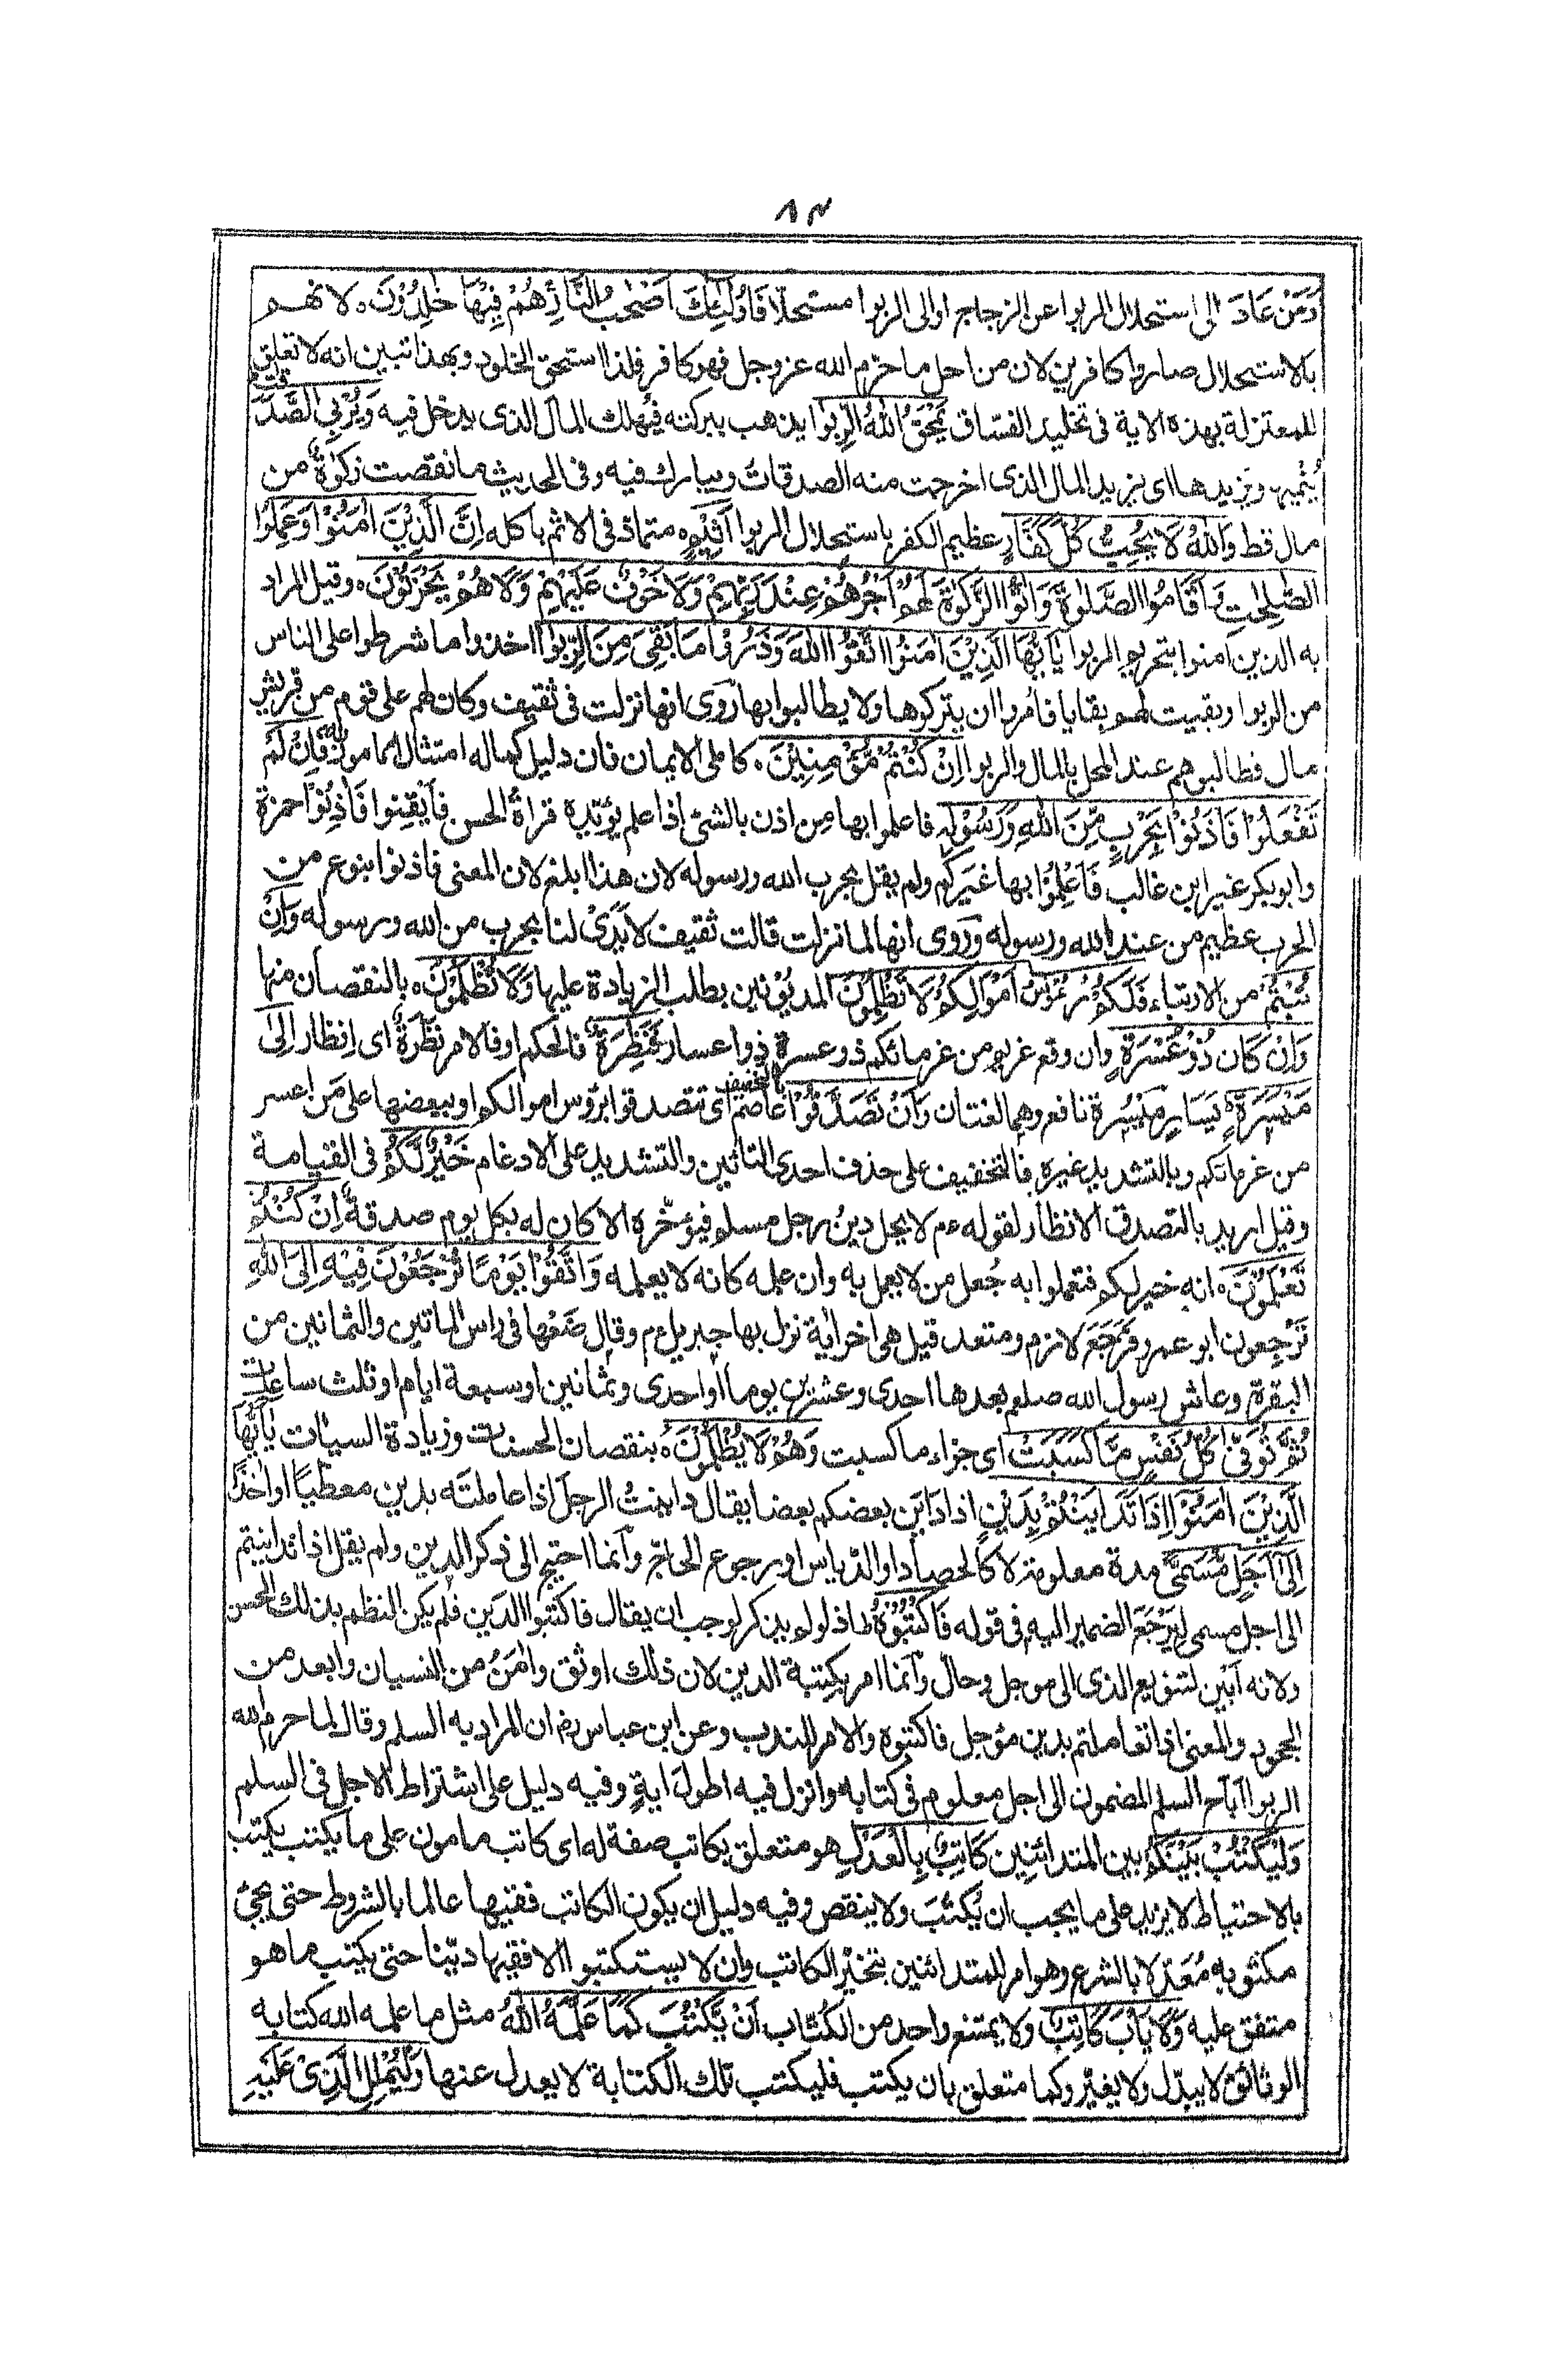 ٨٣
وَمَنْ عَادَ الى استحلال الربوا عن الزجاج او الى الربوا مستحلّا فَاُولٰٓئِكَ اَصْحٰبُ النَّارِ هُمْ فِيْهَا خٰلِدُوْنَ ٥ لانهم
بالاستحلال صاروا كافرين لان من احل ما حرّم الله عز وجل فهو كافر فلذا استحق الخلود وبهذا تبين انه لا تعلق
للمعتزلة بهذه الاية فى تخليد الفسّاق يَمْحَقُ اللهُ الرِّبٰوا يذهب ببركته ويُهلك المال الذى يدخل فيه وَيُرْبِى الصَّدَقٰتِ
يُنَمّيها ويزيدها اى يزيد المال الذى اخرجت منه الصدقات ويبارك فيه وفى الحديث ما نقصت زكوٰةٌ من
مال قط وَاللهُ لَا يُحِبُّ كُلَّ كَفَّارٍ عظيم الكفر باستحلال الربوا اَثِيْمٍ ٥ متماد فى الاثم باكله اِنَّ الَّذِيْنَ اٰمَنُوْا وَعَمِلُوا
الصّٰلِحٰتِ وَاَقَامُوا الصَّلٰوةَ وَاٰتَوُا الزَّكٰوةَ لَهُمْ اَجْرُهُمْ عِنْدَ رَبِّهِمْ وَلَا خَوْفٌ عَلَيْهِمْ وَلَا هُمْ يَحْزَنُوْنَ ٥ وقيل المراد
به الذين اٰمنوا بتحريم الربوا يٰاَيُّهَا الَّذِيْنَ اٰمَنُوا اتَّقُوا اللهَ وَذَرُوْا مَا بَقِىَ مِنَ الرِّبٰوا اخذوا ما شرطوا على الناس
من الربوا وبقيت لهم بقايا فاُمروا ان يتركوها ولا يطالبوا بها رُوى انها نزلت فى ثقيف وكان لهم على قوم من قريش
مال فطالبوهم عند المحل بالمال والربوا اِنْ كُنْتُمْ مُّؤْمِنِيْنَ ٥ كاملى الايمان فان دليل كماله امتثال المامور به فَاِنْ لَّمْ
تَفْعَلُوْا فَاْذَنُوْا بِحَرْبٍ مِّنَ اللهِ وَرَسُوْلِهٖ فاعلموا بها مِن اذن بالشئ اذا علم يؤيّده قراءة الحسن فاَيقِنوا فَاٰذِنُوْا حمزة
وابو بكر غير ابن غالب فَاَعْلِمُوْا بها غيركم ولم يقل بحرب الله ورسوله لان هذا ابلغ لان المعنى فاذنوا بنوع من
الحرب عظيم من عند الله ورسوله ورُوى انها لما نزلت قالت ثقيف لا يَدَىْ لنا بحرب من الله ورسوله وَاِنْ
تُبْتُمْ من الارتباء فَلَكُمْ رُءُوْسُ اَمْوَالِكُمْ لَا تَظْلِمُوْنَ المديُوْنين بطلب الزيادة عليها وَلَا تُظْلَمُوْنَ ٥ بالنقصان منها
وَاِنْ كَانَ ذُوْ عُسْرَةٍ وان وقع غريم من غرمائكم ذو عسرة ذو اعسار فَنَظِرَةٌ فالحكم او فالامر نَظِرَةٌ اى اِنظار اِلٰى
مَيْسَرَةٍ يَسَارٍ مَيْسُرة نافع وهما لغتان وَاَنْ تَصَدَّقُوْا بالتخفيف عاصم اى تتصدقوا برؤس اموالكم او ببعضها على مَن اعسر
من غرمائكم وبالتشديد غيره فالتخفيف على حذف احدى التائين والتشديد على الادغام خَيْرٌ لَّكُمْ فى القيامة
وقيل اريد بالتصدق الانظار لقوله ءم لا يحل دينُ رجل مسلم فيؤخّره الا كان له بكل يوم صدقةٌ اِنْ كُنْتُمْ
تَعْلَمُوْنَ ٥ انه خير لكم فتعملوا به جُعل من لا يعمل به وان علمه كانه لا يعلمه وَاتَّقُوْا يَوْمًا تُرْجَعُوْنَ فِيْهِ اِلَى اللهِ
تَرْجِعون ابو عمرو فرَجَعَ لازم ومتعد قيل هى اٰخر اٰية نزل بها جبريل ءم وقال ضَعْها فى راس المائتين والثمانين من
البقرة وعاش رسول الله صلعم بعدها احدى وعشرين يوما او احدى وثمانين او سبعة ايام او ثلث ساعات
ثُمَّ تُوَفّٰى كُلُّ نَفْسٍ مَّا كَسَبَتْ اى جزاء ما كسبت وَهُمْ لَا يُظْلَمُوْنَ ٥ بنقصان الحسنات وزيادة السيات يٰاَيُّهَا
الَّذِيْنَ اٰمَنُوْا اِذَا تَدَايَنْتُمْ بِدَيْنٍ اذا دَايَن بعضكم بعضا يقال داينتُ الرجل اذا عاملتَه بدين معطيًا او اٰخذًا
اِلٰى اَجَلٍ مُّسَمًّى مدة معلومة لا كالحصاد او الدّياس او رجوع الحاجّ وانما احتيج الى ذكر الدين ولم يقل اذا تداينتم
الى اجل مسمى لِيَرْجَعَ الضمير اليه فى قوله فَاكْتُبُوْهُ ط اذ لو لم يذكر لوجب ان يقال فاكتبوا الدَين فلم يكن النظم بذلك الحسن
ولانه اَبْين لتنويع الذى الى موجل وحالّ وانما امر بكِتبة الدين لان ذلك اوثق واٰمَنُ من النسيان وابعد من
الجحود والمعنى اذا تعاملتم بدين مؤجل فاكتبوه والامر للندب وعن ابن عباس رض ان المراد به السلم وقال لما حرم الله
الربوا اباح السلم المضمون الى اجل معلوم فى كتابه وانزل فيه اطول اٰيةٍ وفيه دليل على اشتراط الاجل فى السلم
وَلْيَكْتُبْ بَّيْنَكُمْ بين المتدائنين كَاتِبٌ بِالْعَدْلِ هو متعلق بكاتب صفة له اى كاتب مامون على ما يكتب يكتب
بالاحتياط لا يزيد على ما يجب ان يُكتَبَ ولا ينقص وفيه دليل ان يكون الكاتب فقيها عالما بالشروط حتى يجئ
مكتوبه مُعَدّلا بالشرع وهو امر للمتدائنين بتخيّر الكاتب وان لا يستكتبوا الا فقيها ديّنا حتى يكتب ما هو
متفق عليه وَلَا يَاْبَ كَاتِبٌ ولا يمتنع واحد من الكُتّاب اَنْ يَّكْتُبَ كَمَا عَلَّمَهُ اللهُ مثل ما علمه الله كتابه
الوثائق لا يبدّل ولا يغيّر وكما متعلق بان يكتب فليكتب تلك الكتابة لا يعدل عنها وَلْيُمْلِلِ الَّذِىْ عَلَيْهِ